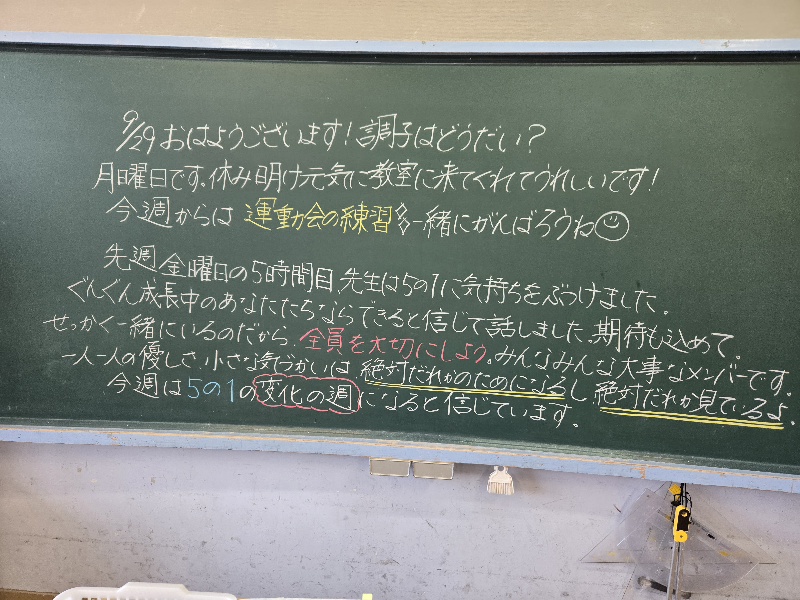 9/29 おはようございます!調子はどうだい?
月曜日です。休み明け元気に教室に来てくれてうれしいです!
今週からは 運動会の練習も一緒にがんばろうね
先週金曜日の5時間目、先生は5の1に気持ちをぶつけました。
ぐんぐん成長中のあなたたちならできると信じて話しました。期待も込めて。
せっかく一緒にいるのだから、全員を大切にしよう。みんなみんな大事なメンバーです。
一人一人の優しさ、小さな気づかいは、絶対だれかのためになるし 絶対だれか見ているよ。
今週は5の1の変化の週になると信じています。